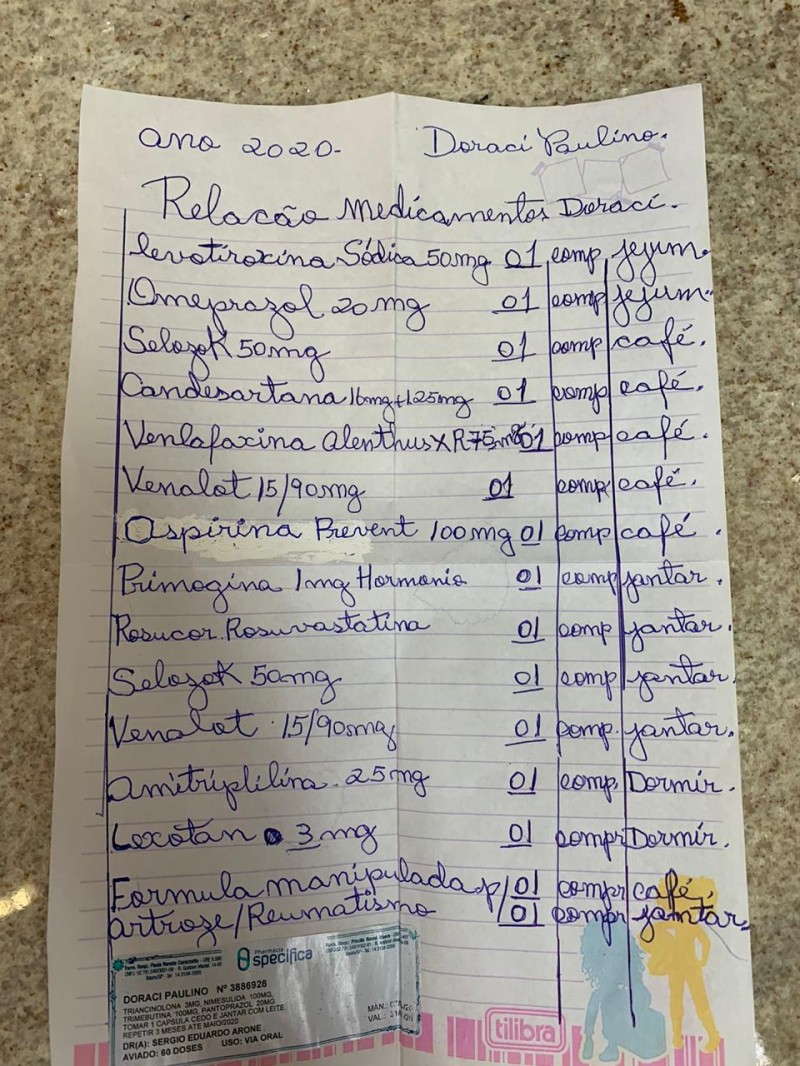 ano 2020- Doraci Paulino.
Relacão Medicamentos Doraci.
levotiroxina Sódica 50mg 01 comp jejum.
Omeprazol 20mg 01 comp jejum.
Selozok 50mg 01 comp café.
Candesartana 16mg+1.25mg 01 comp café.
Venlafaxina Alenthus XR 75mg 01 comp café.
Venalot 15/90mg 01 comp café.
Aspirina Prevent 100mg 01 comp café.
Primogina 1mg Hormonio 01 comp jantar.
Rosucor. Rosuvastatina 01 comp jantar.
Selozok 50mg 01 comp jantar.
Venalot 15/90mg 01 comp. jantar.
Amitriplilina. 25mg 01 comp. Dormir.
Lexotan 3mg 01 compr Dormir.
Formula manipulada p/ 01 compr café,
artroze/Reumatismo /01 compr jantar.
Pharmácia
specífica
DORACI PAULINO Nº 3886928
TRIANCINOLONA 3MG, NIMESULIDA 100MG,
TRIMEBUTINA 100MG, PANTOPRAZOL 20MG
TOMAR 1 CAPSULA CEDO E JANTAR COM LEITE
REPETIR 3 MESES ATE MAIO/2020
DR(A): SERGIO EDUARDO ARONE
AVIADO: 60 DOSES USO: VIA ORAL
MAN.:
VAL.:
tilibra